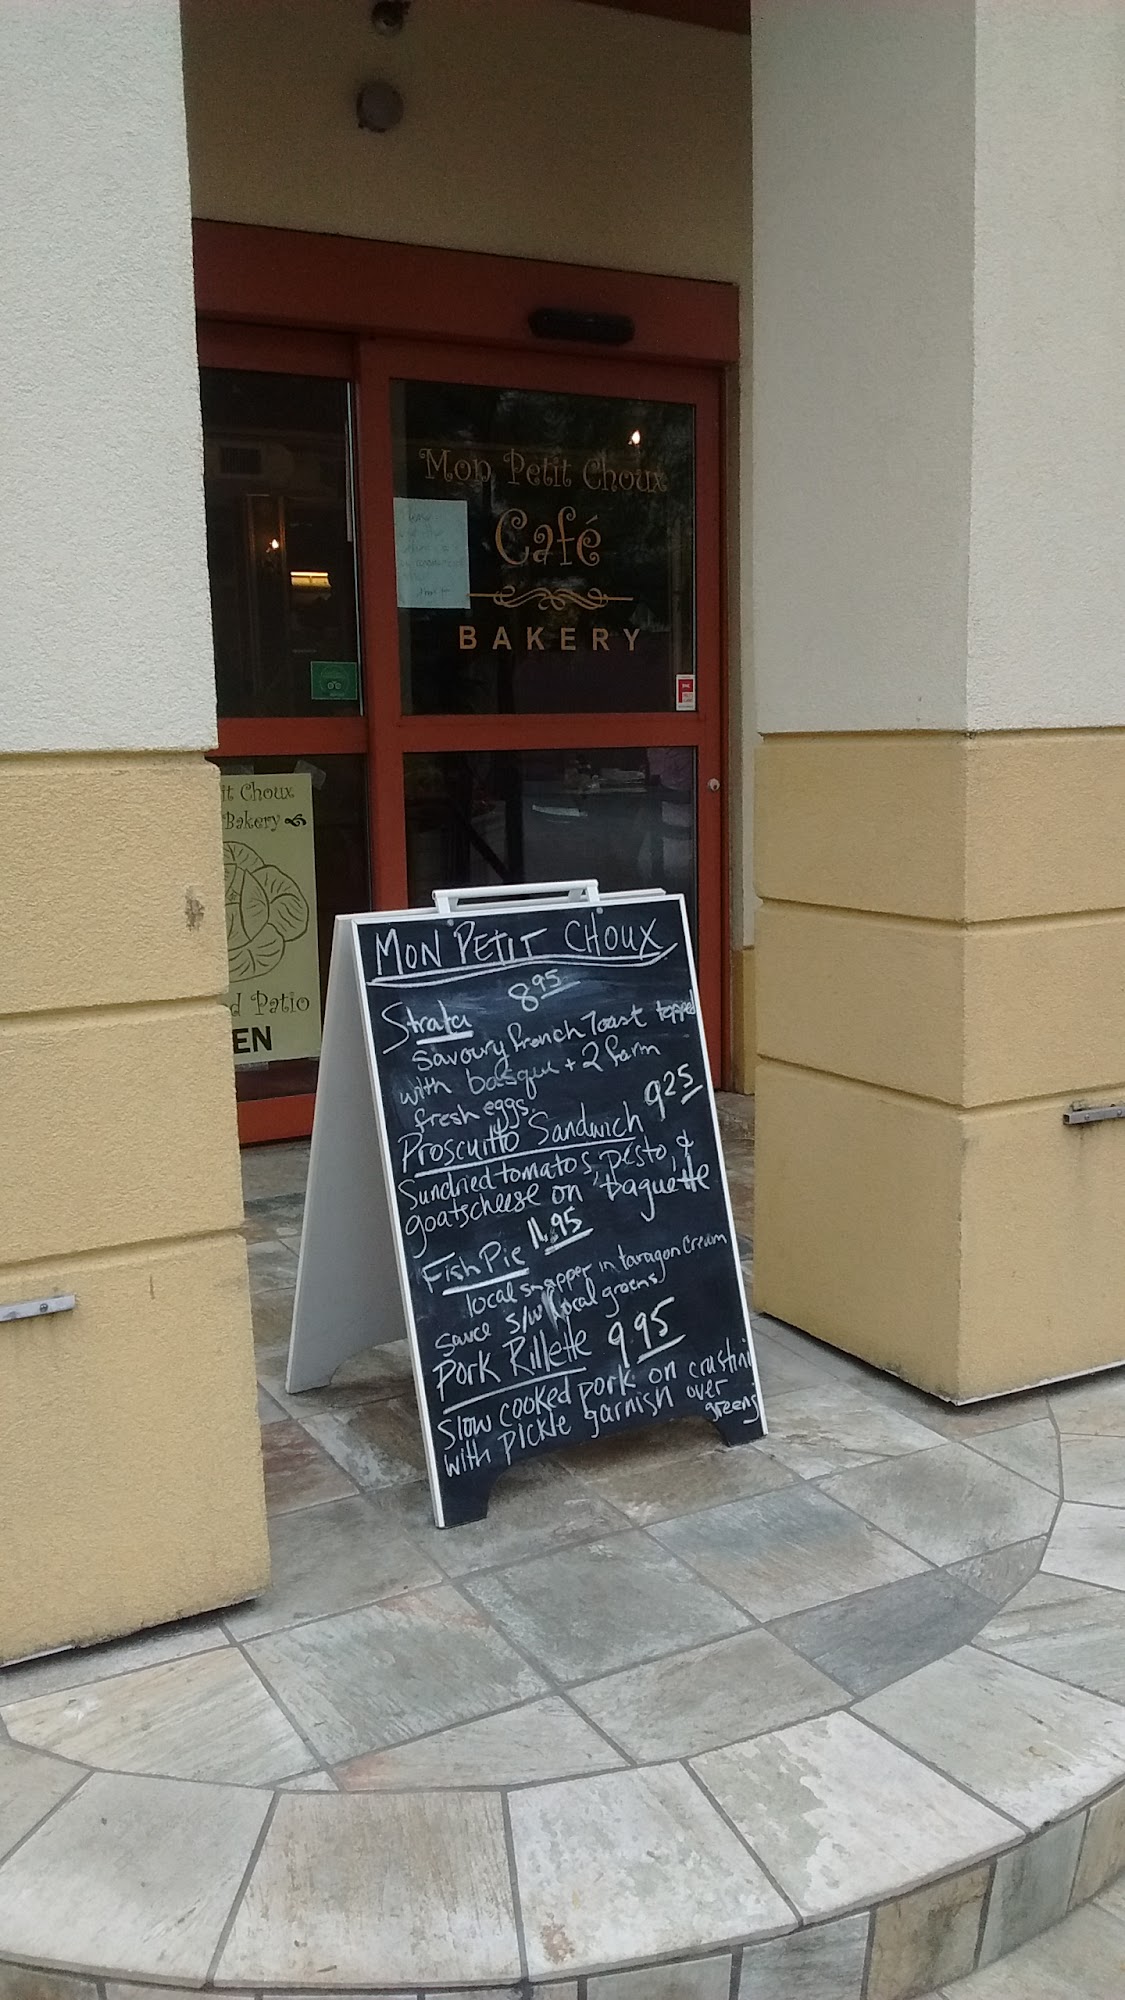 Mon Petit Choux
Café
BAKERY
it Choux
Bakery
d Patio
EN
MON PETIT CHOUX
Strata 8.95
Savoury French Toast topped
with basque + 2 farm
fresh eggs.
Proscuitto Sandwich 9.25
Sundried tomatos, pesto, &
goatscheese on baguette
Fish Pie 11.95
local snapper in taragon cream
sauce s/w local greens
Pork Rillette 9.95
Slow cooked pork on crustini
with pickle garnish over
greens